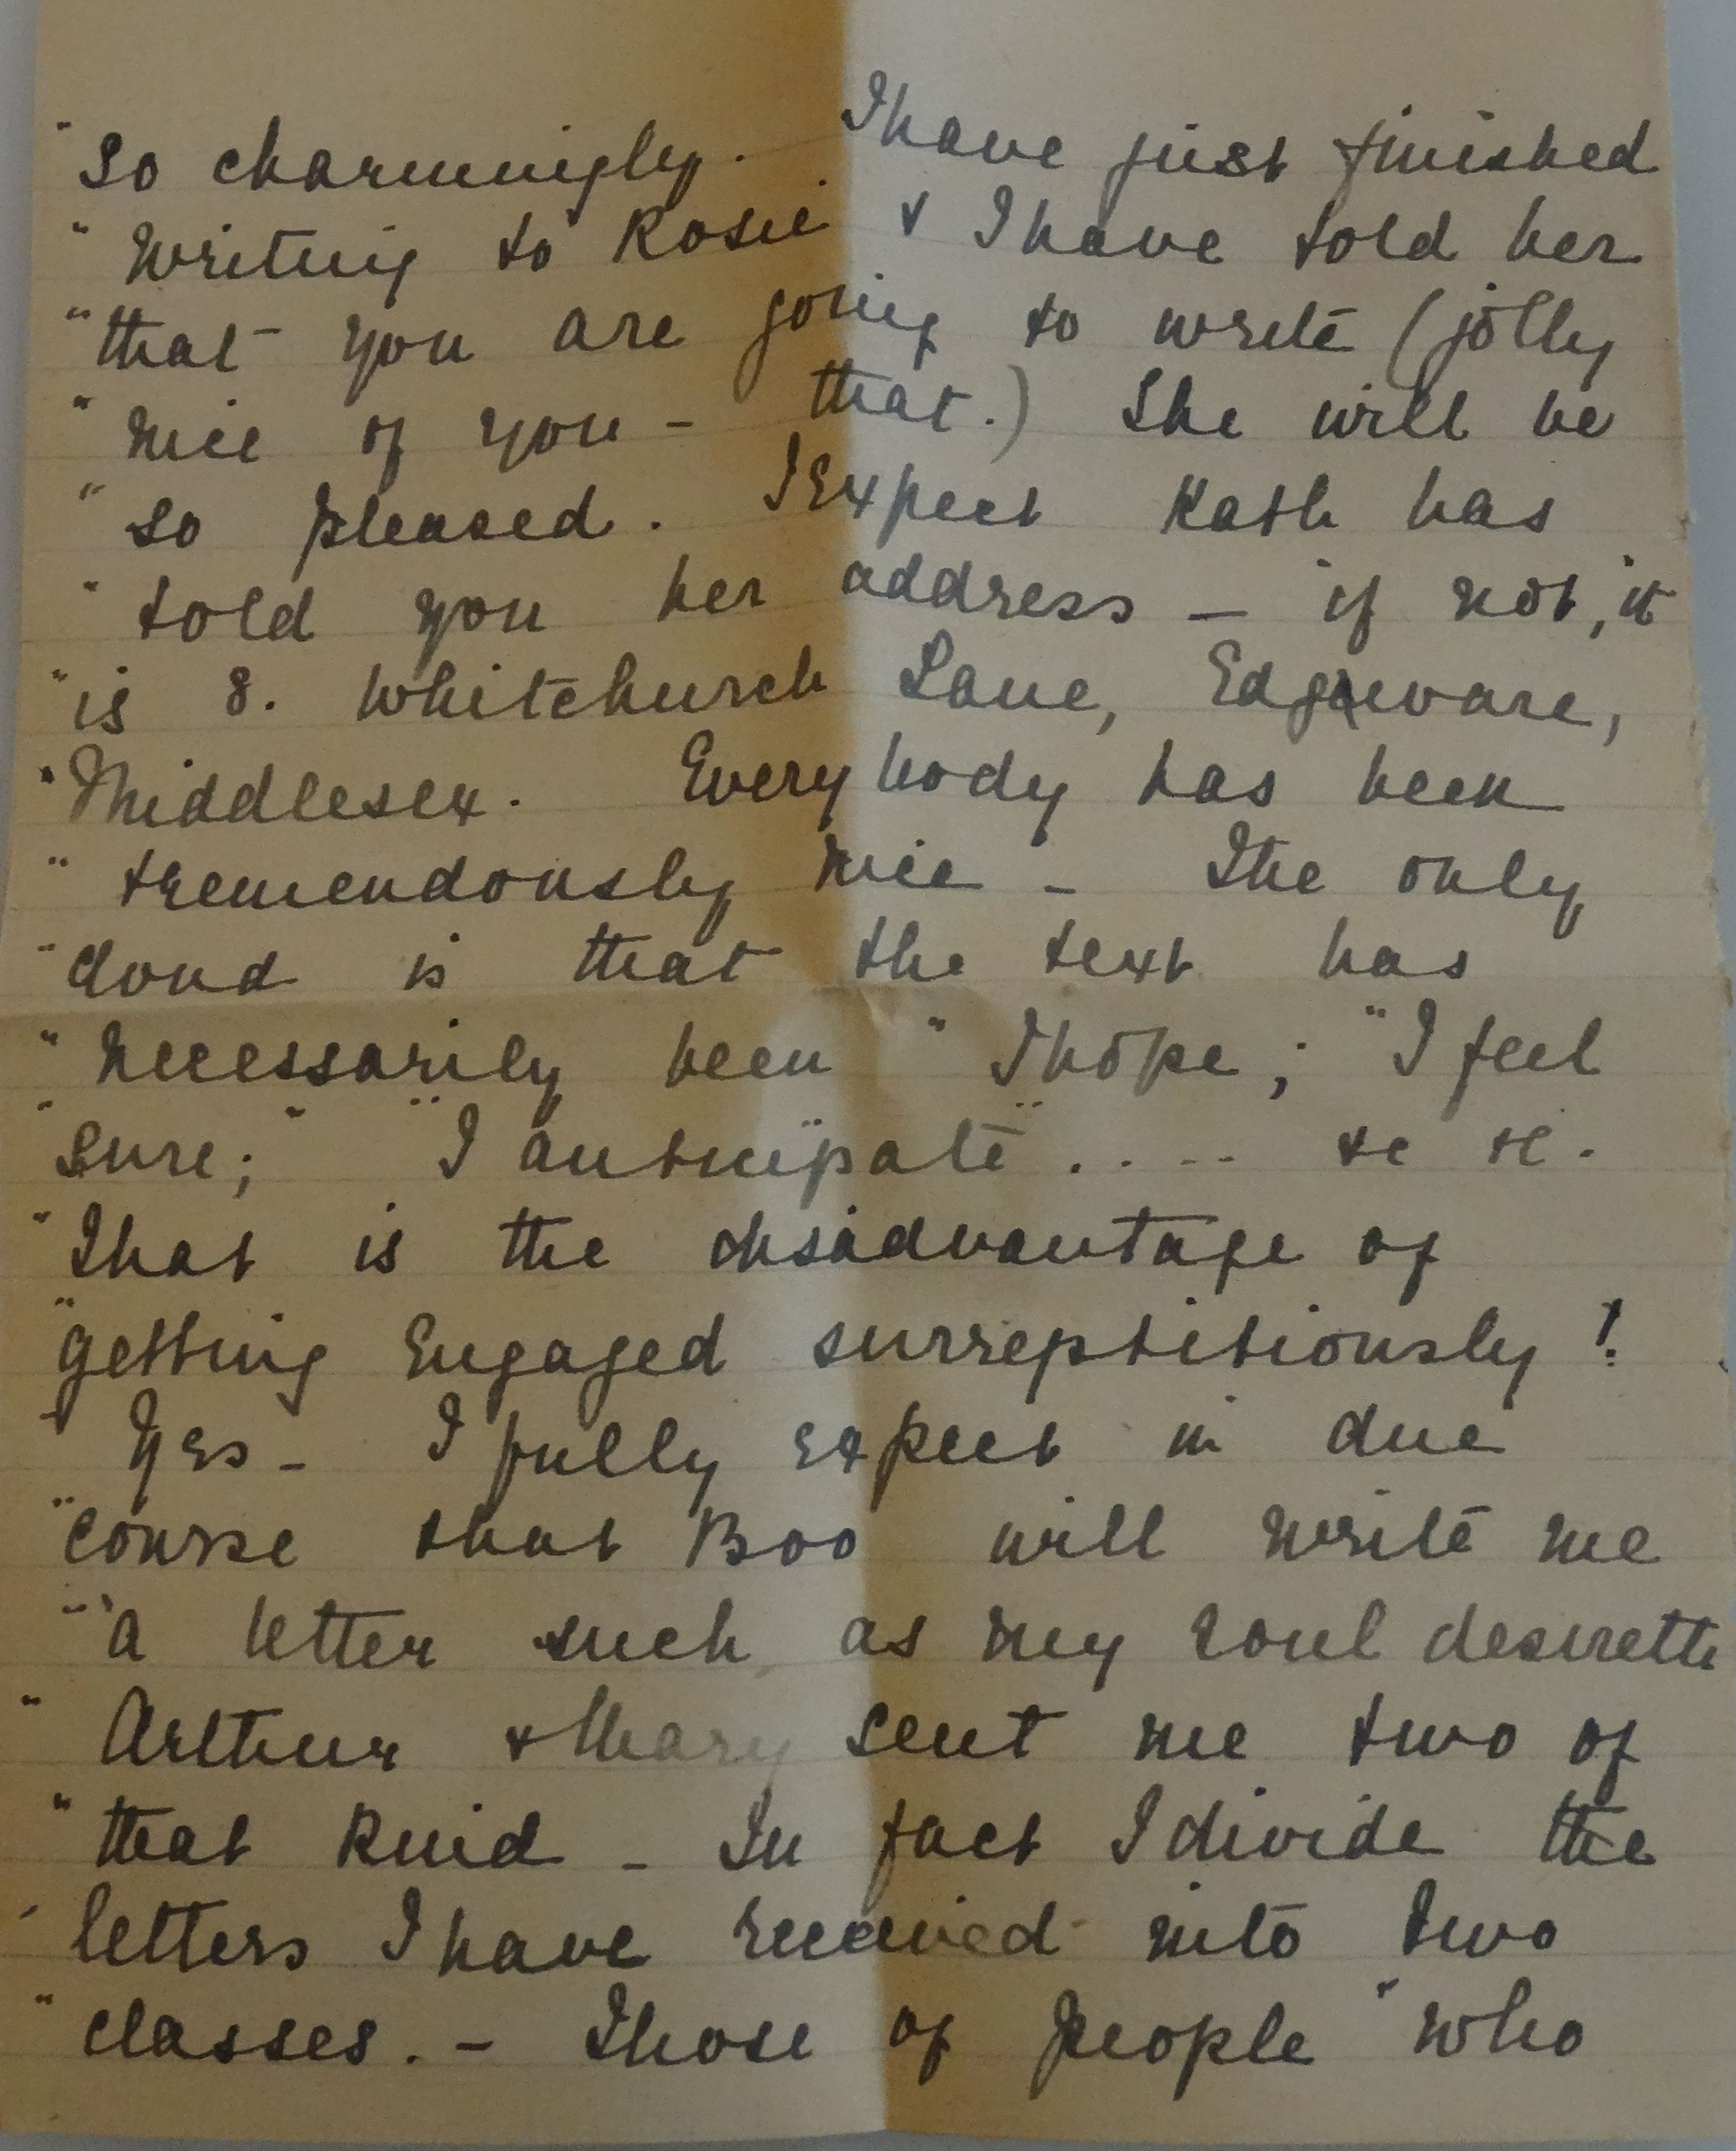 "so charmingly. I have just finished
"writing to Rosie. & I have told her
"that you are going to write (jolly
"nice of you - that.) She will be
"so pleased. I expect Kath has
"told you her address - if not, it
"is 8. Whitchurch Lane, Edgware,
"Middlesex. Everybody has been
"tremendously nice - The only
"cloud is that the text has
"necessarily been "I hope; "I feel
"sure;" "I anticipate" .... &c &c.
"That is the disadvantage of
"getting engaged surreptitiously!
"Yes - I fully expect in due
"course that Boo will write me
"a letter such as my soul desireth
"Arthur & Mary sent me two of
"that kind - In fact I divide the
"letters I have received into two
"classes. - Those of people "who